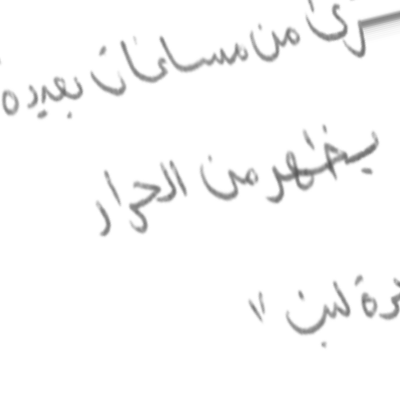 من مسافات بعيده
يظهر من الجرار
لبن "